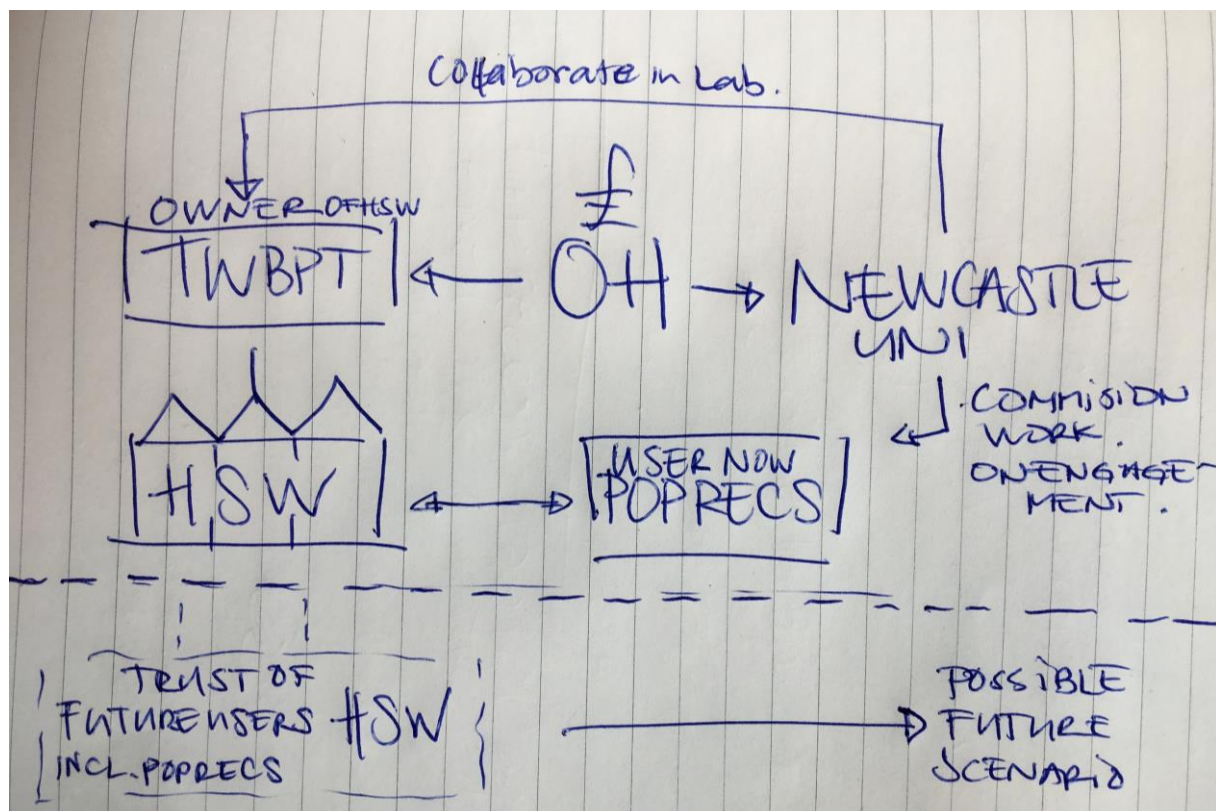 Collaborate in Lab.
£
OWNER OF HSW
TWBPT
OH
NEWCASTLE
UNI
COMMISION
WORK.
ON ENGAGE-
MENT.
HSW
USER NOW
POPRECS
TRUST OF
FUTURE USERS
INCL. POPRECS
HSW
POSSIBLE
FUTURE
SCENARIO